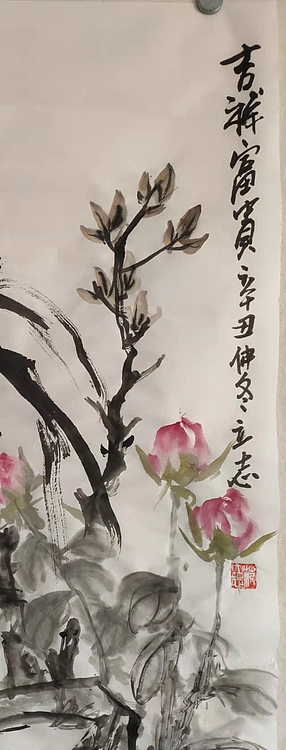 吉祥富贵 辛丑仲冬 立志